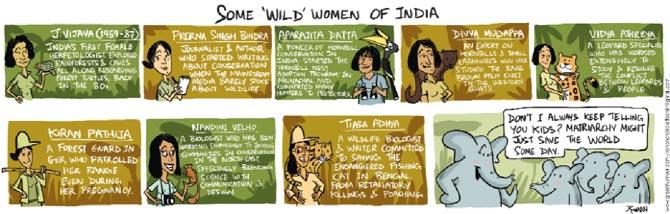 SOME 'WILD' WOMEN OF INDIA
J. VIJAYA (1959-87)
INDIA'S FIRST FEMALE
HERPETOLOGIST, EXPLORED
RAINFORESTS & CAVES
ALL ALONE, RESEARCHING
FOREST TURTLES, BACK
IN THE 80s.
PRERNA SINGH BINDRA
JOURNALIST & AUTHOR
WHO STARTED WRITING
ABOUT CONSERVATION
WHEN THE MAINSTREAM
MEDIA BARELY SPOKE
ABOUT WILDLIFE.
APARAJITA DATTA
A PIONEER OF HORNBILL
CONSERVATION IN
INDIA. STARTED THE
HORNBILL NEST
ADOPTION PROGRAM IN
ARUNACHAL AND
CONVERTED MANY
HUNTERS TO PROTECTORS
DIVYA MUDAPPA
AN EXPERT ON
HORNBILLS & SMALL
CARNIVORES WHO HAS
STUDIED THE RARE
BROWN PALM CIVET
IN THE WESTERN
GHATS
VIDYA ATHREYA
A LEOPARD SPECIALIST
WHO HAS WORKED
EXTENSIVELY TO
STUDY & RESOLVE
THE CONFLICT
BETWEEN LEOPARDS
& PEOPLE
KIRAN PATHIJA
A FOREST GUARD IN
GIR, WHO PATROLLED
HER RANGE
EVEN DURING
HER PREGNANCY.
NANDINI VELHO
A BIOLOGIST WHO HAS BEEN
WORKING TO INVOLVE
COMMUNITIES IN CONSERVATION
IN THE NORTH-EAST,
EFFECTIVELY BLENDING
SCIENCE WITH
COMMUNICATION &
DESIGN.
TIASA ADHYA
A WILDLIFE BIOLOGIST
& WRITER COMMITTED
TO SAVING THE
ENDANGERED FISHING
CAT IN BENGAL
FROM RETALIATORY
KILLINGS & POACHING.
DON'T I ALWAYS KEEP TELLING
YOU KIDS? MATRIARCHY MIGHT
JUST SAVE THE WORLD
SOME DAY.